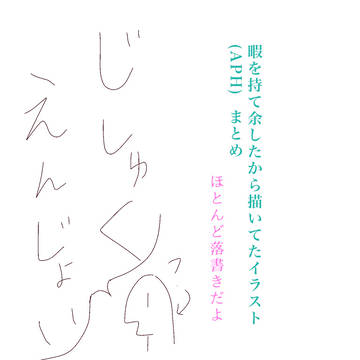 暇を持て余したから描いてたイラスト
(APH) まとめ
ほとんど落書きだよ
じしゅく
えんじょい